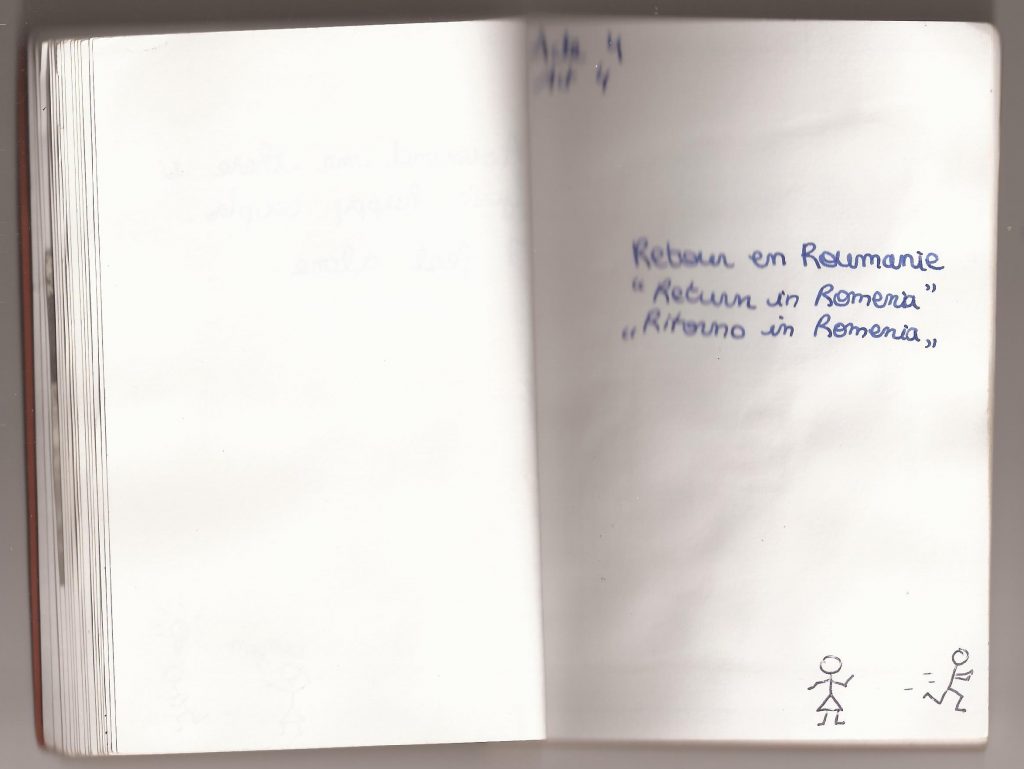 Acte 4
Act 4
Retour en Roumanie
“Return in Romenia”
„Ritorno in Romenia„